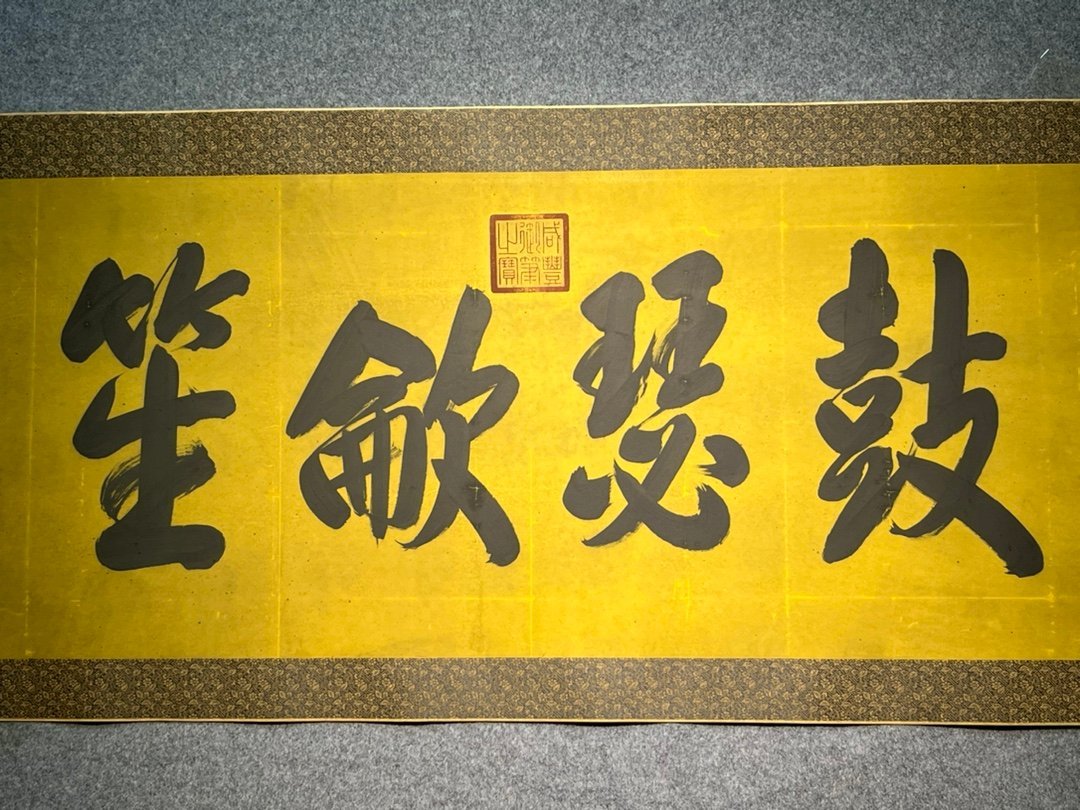 鼓瑟龡笙
咸豐御筆之寶